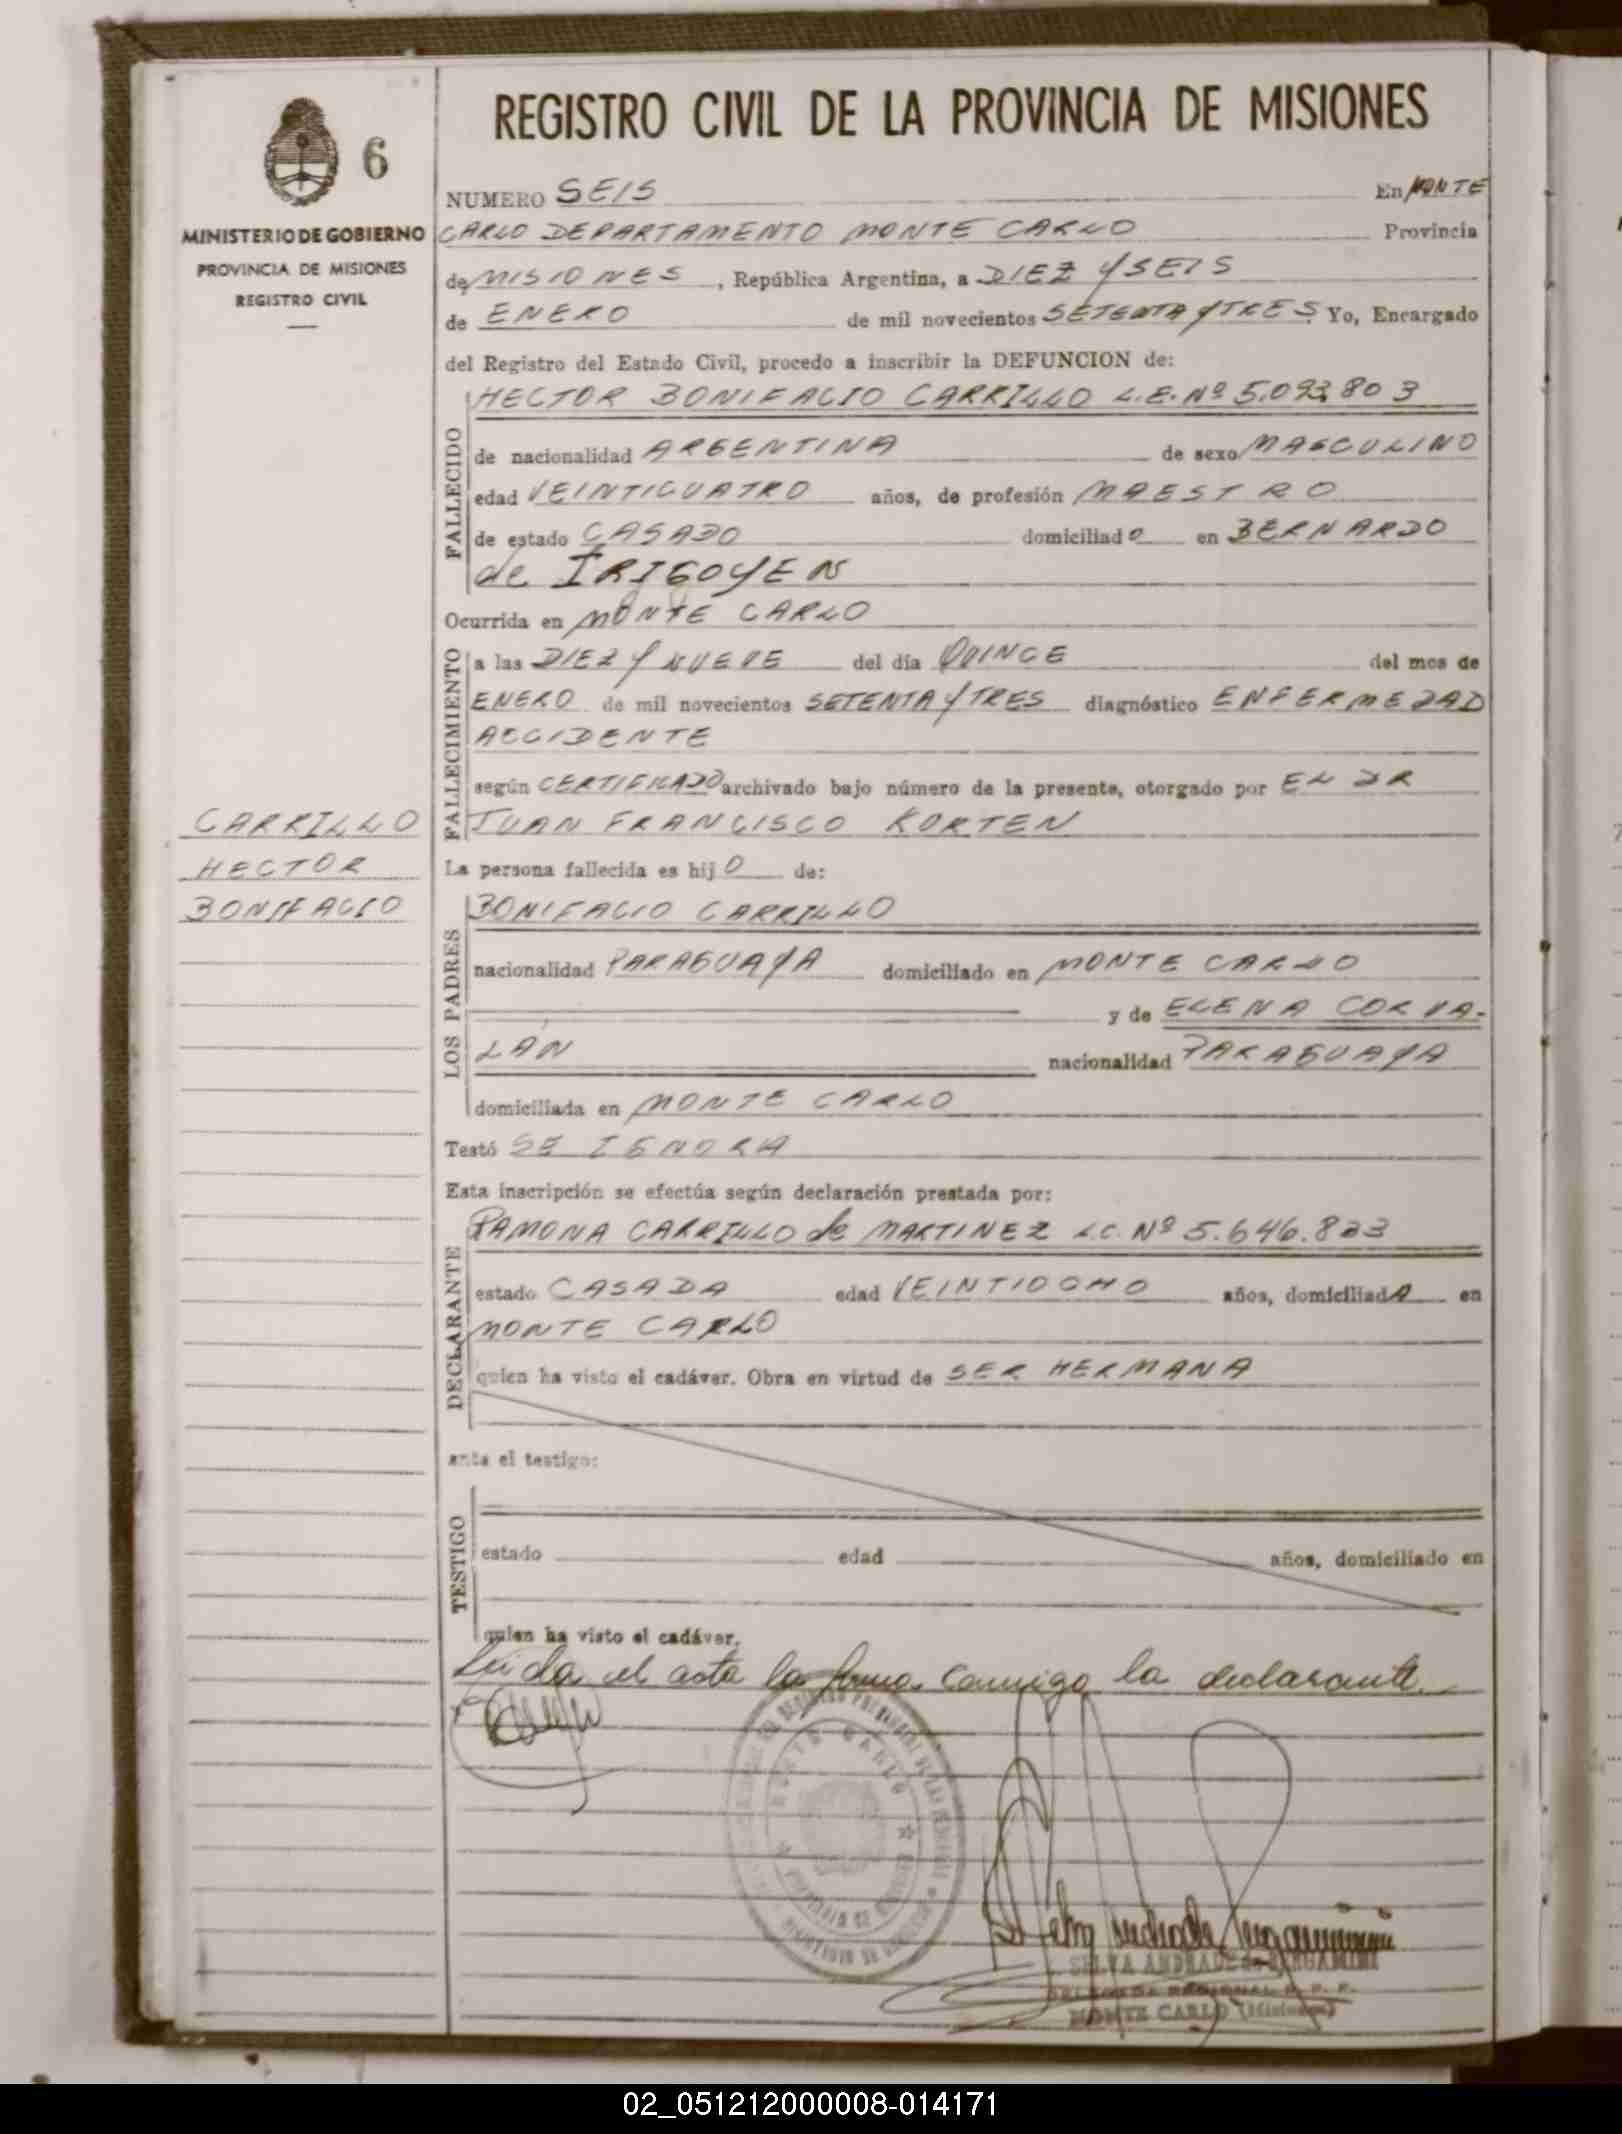 REGISTRO CIVIL DE LA PROVINCIA DE MISIONES
6
MINISTERIO DE GOBIERNO
PROVINCIA DE MISIONES
REGISTRO CIVIL
NUMERO SEIS En MONTE
CARLO DEPARTAMENTO MONTE CARLO Provincia
de MISIONES, República Argentina, a DIEZ Y SEIS
de ENERO de mil novecientos SETENTA Y TRES Yo, Encargado
del Registro del Estado Civil, procedo a inscribir la DEFUNCION de:
FALLECIDO
HECTOR BONIFACIO CARRILLO L.E. Nº 5.093.803
de nacionalidad ARGENTINA de sexo MASCULINO
edad VEINTICUATRO años, de profesión MAESTRO
de estado CASADO domiciliado en BERNARDO
de IRIGOYEN
Ocurrida en MONTE CARLO
FALLECIMIENTO
a las DIEZ Y NUEVE del día QUINCE del mes de
ENERO de mil novecientos SETENTA Y TRES diagnóstico ENFERMEDAD
ACCIDENTE
según CERTIFICADO archivado bajo número de la presente, otorgado por EL DR
JUAN FRANCISCO KORTEN
CARRILLO
HECTOR
BONIFACIO
La persona fallecida es hijO de:
LOS PADRES
BONIFACIO CARRILLO
nacionalidad PARAGUAYA domiciliado en MONTE CARLO
y de ELENA CORVA-
LÁN nacionalidad PARAGUAYA
domiciliada en MONTE CARLO
Testó SE IGNORA
Esta inscripción se efectúa según declaración prestada por:
DECLARANTE
RAMONA CARRILLO de MARTINEZ L.C. Nº 5.646.823
estado CASADA edad VEINTIOCHO años, domiciliadA en
MONTE CARLO
quien ha visto el cadáver. Obra en virtud de SER HERMANA
ante el testigo:
TESTIGO
estado edad años, domiciliado en
quien ha visto el cadáver.
Leida el acta la firma conmigo la declarante
MONTE CARLO
SELVA ANDRADE de BERGAMINI
DELEGADA REGIONAL R. P. P.
MONTE CARLO (Misiones)
02_051212000008-014171